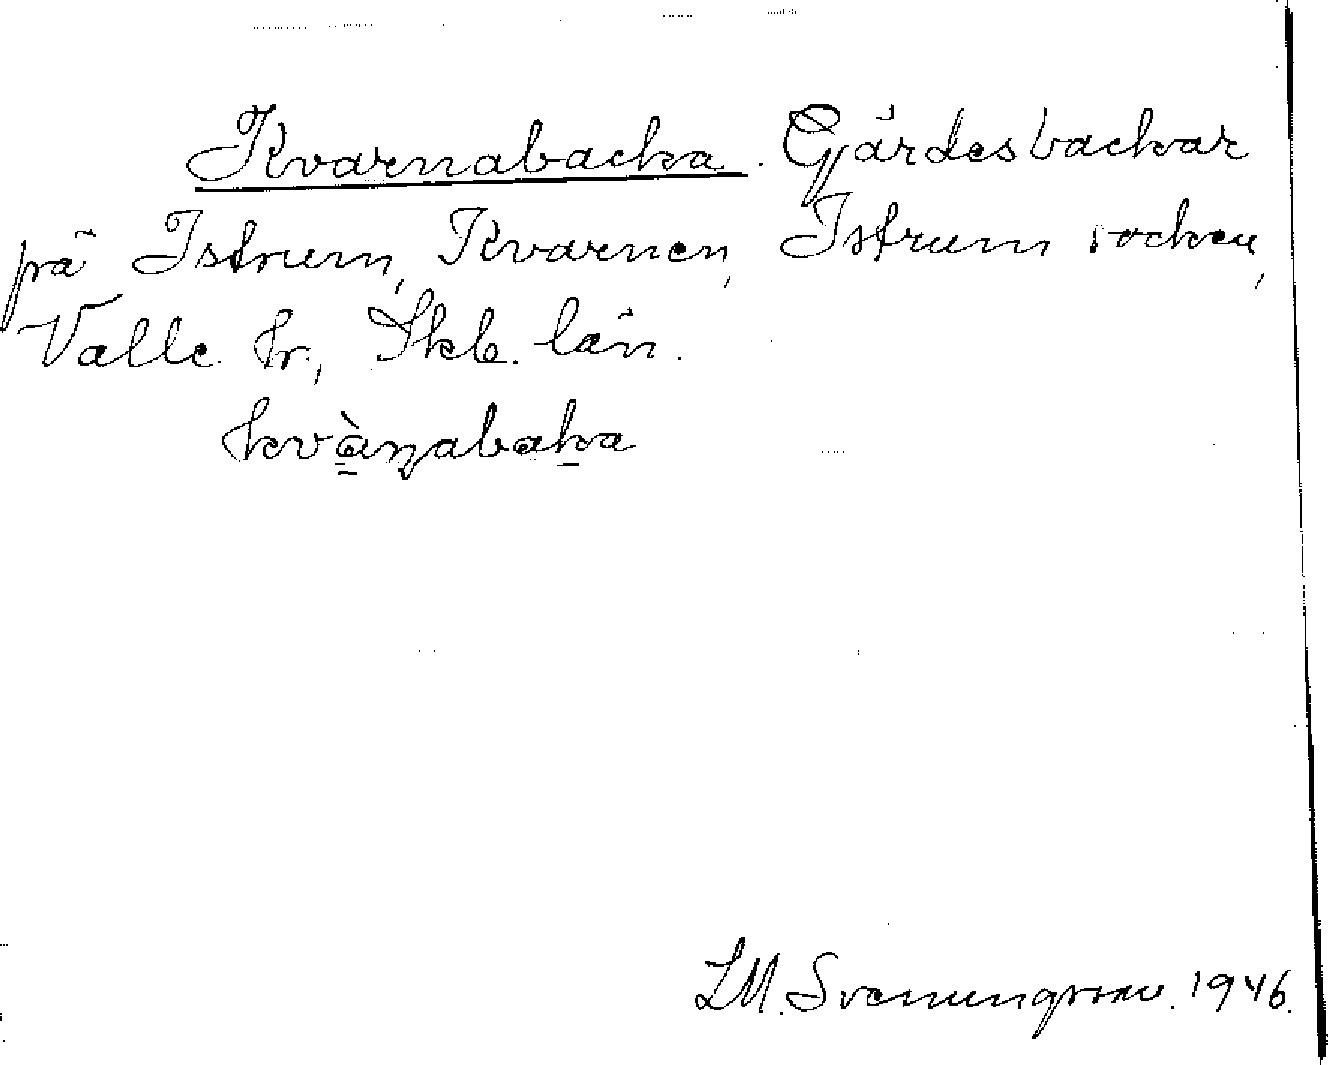 Kvarnabacka. Gärdesbackar
på Istrum, Kvarnen, Istrum socken,
Valle hr., Skb. län.
kvàṇabaka
LM. Svenungsson. 1946.